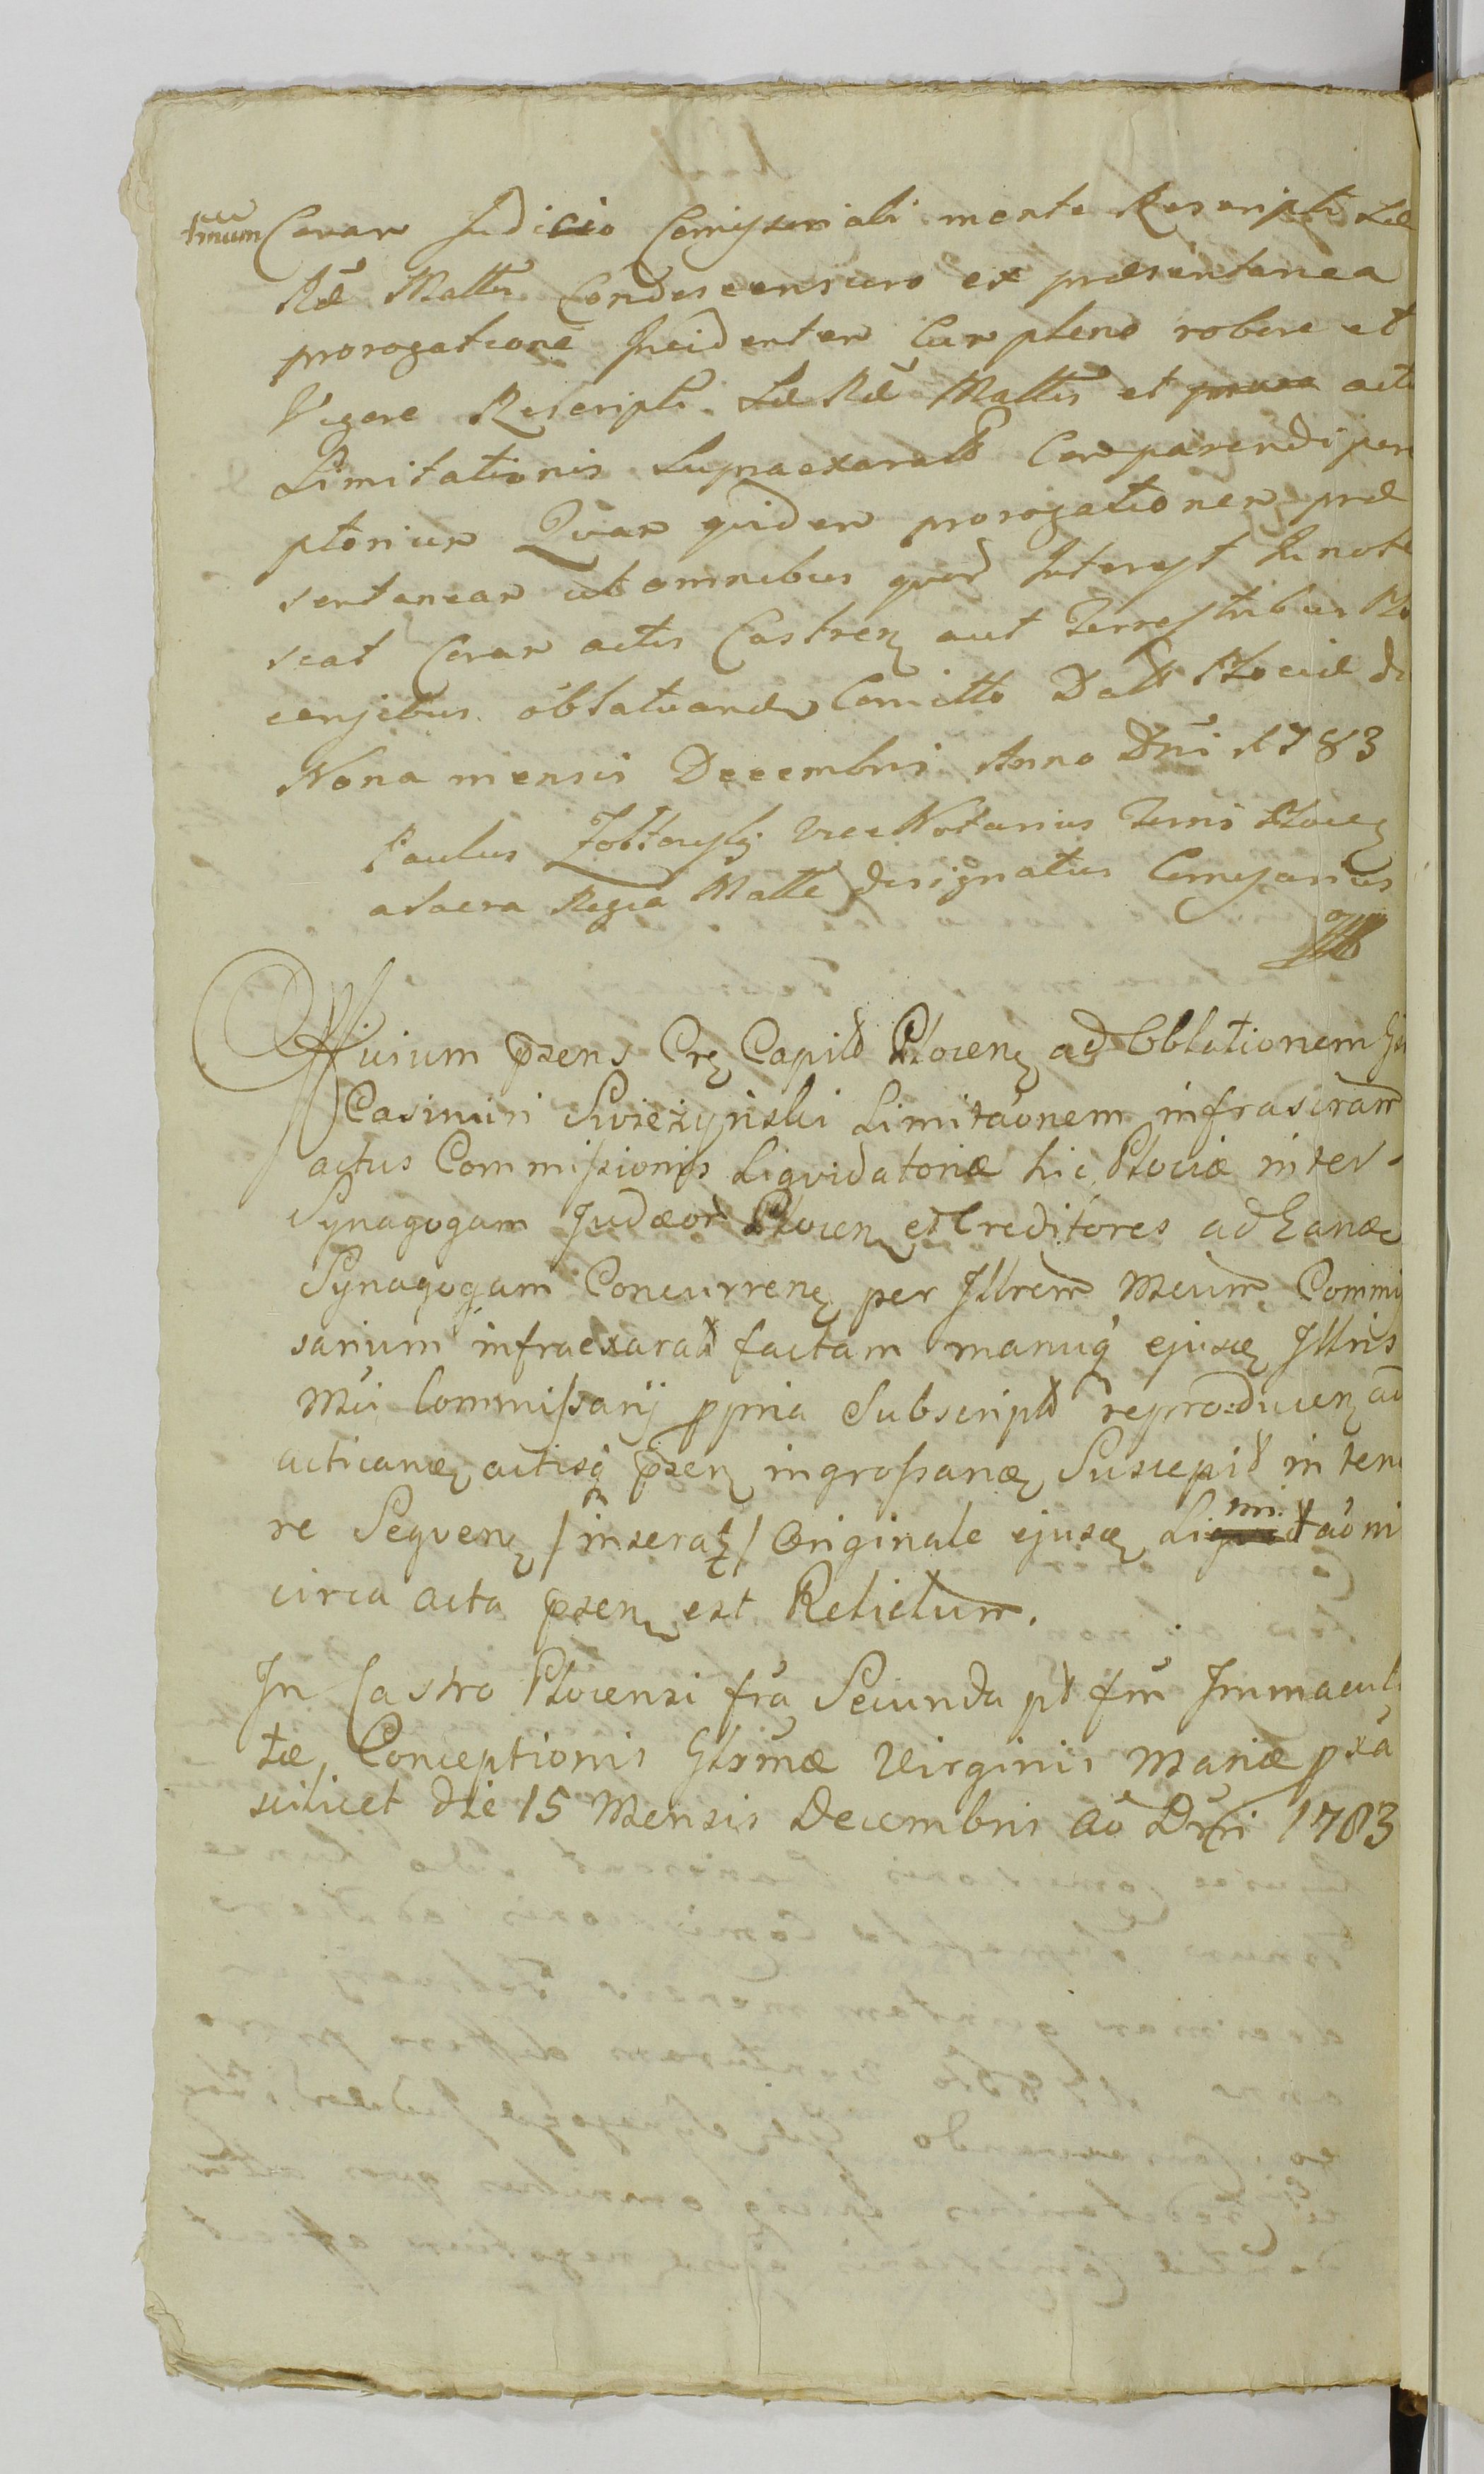 tmum Coram Judicio Comissoriali mente Rescripti Sae
Rae Mattis Condescensuro ex praesentanea
prorogatione Incidenter Cum pleno robore et
Vigore Rescripti Sae Rae Mattis et actu
Limitationis Supraexarat Comparendi perem
ptorium Quam quidem prorogationem prae
sentaneam ut omnibus quod Interest Innote
scat Coram actis Castren aut Terrestribus Plo
censibus oblatuandam Comitto Datt Plociae die
Nona mensis Decembris Anno Dni 1783
Paulus Vice Notarius Terris Plocen
a Sacra Regia Matte designatus Comissarius
Officium psens Cre Capit Plocen ad Oblationem
Casimiri Swiezynski Limitaonem infrascram
actus Commissionis Liqvidatoriae hic Plociae inter
Synagogam Judaeor Plocen et Creditores ad Eanae
Synagogam Concurren per Illrem Mcum Commis
sarium infraexarat factam manuq ejusd Illris
Mci Commissarij ppria Subscript reproducen ad
acticand actisq psen ingrossand Suscepit in teno
re Seqven / inserat / Originale ejusd Limitaoni
circa acta psen est Relictum.
In Castro Plocensi fra Secunda pt fm Immacula
tae Conceptionis Glrmae Virginis Mariae pxa
scilicet die 15 Mensis Decembris Ao Dni 1783